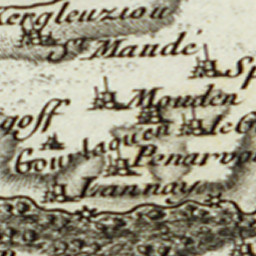 Kergleuziou
St Mandé
Sp
Mouden
goff
le G
Gourlaouen
Penarvo
Lannay